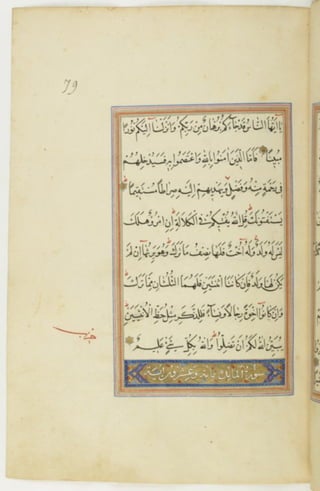 79
يَا أَيُّهَا النَّاسُ قَدْ جَاءَكُمْ بُرْهَانٌ مِنْ رَبِّكُمْ وَأَنْزَلْنَا إِلَيْكُمْ نُورًا
مُبِينًا فَأَمَّا الَّذِينَ آمَنُوا بِاللَّهِ وَاعْتَصَمُوا بِهِ فَسَيُدْخِلُهُمْ
فِي رَحْمَةٍ مِنْهُ وَفَضْلٍ وَيَهْدِيهِمْ إِلَيْهِ صِرَاطًا مُسْتَقِيمًا
يَسْتَفْتُونَكَ قُلِ اللَّهُ يُفْتِيكُمْ فِي الْكَلَالَةِ إِنِ امْرُؤٌ هَلَكَ
لَيْسَ لَهُ وَلَدٌ وَلَهُ أُخْتٌ فَلَهَا نِصْفُ مَا تَرَكَ وَهُوَ يَرِثُهَا إِنْ لَمْ
يَكُنْ لَهَا وَلَدٌ فَإِنْ كَانَتَا اثْنَتَيْنِ فَلَهُمَا الثُّلُثَانِ مِمَّا تَرَكَ
وَإِنْ كَانُوا إِخْوَةً رِجَالًا وَنِسَاءً فَلِلذَّكَرِ مِثْلُ حَظِّ الْأُنْثَيَيْنِ
يُبَيِّنُ اللَّهُ لَكُمْ أَنْ تَضِلُّوا وَاللَّهُ بِكُلِّ شَيْءٍ عَلِيمٌ
حزب
سورة المائدة